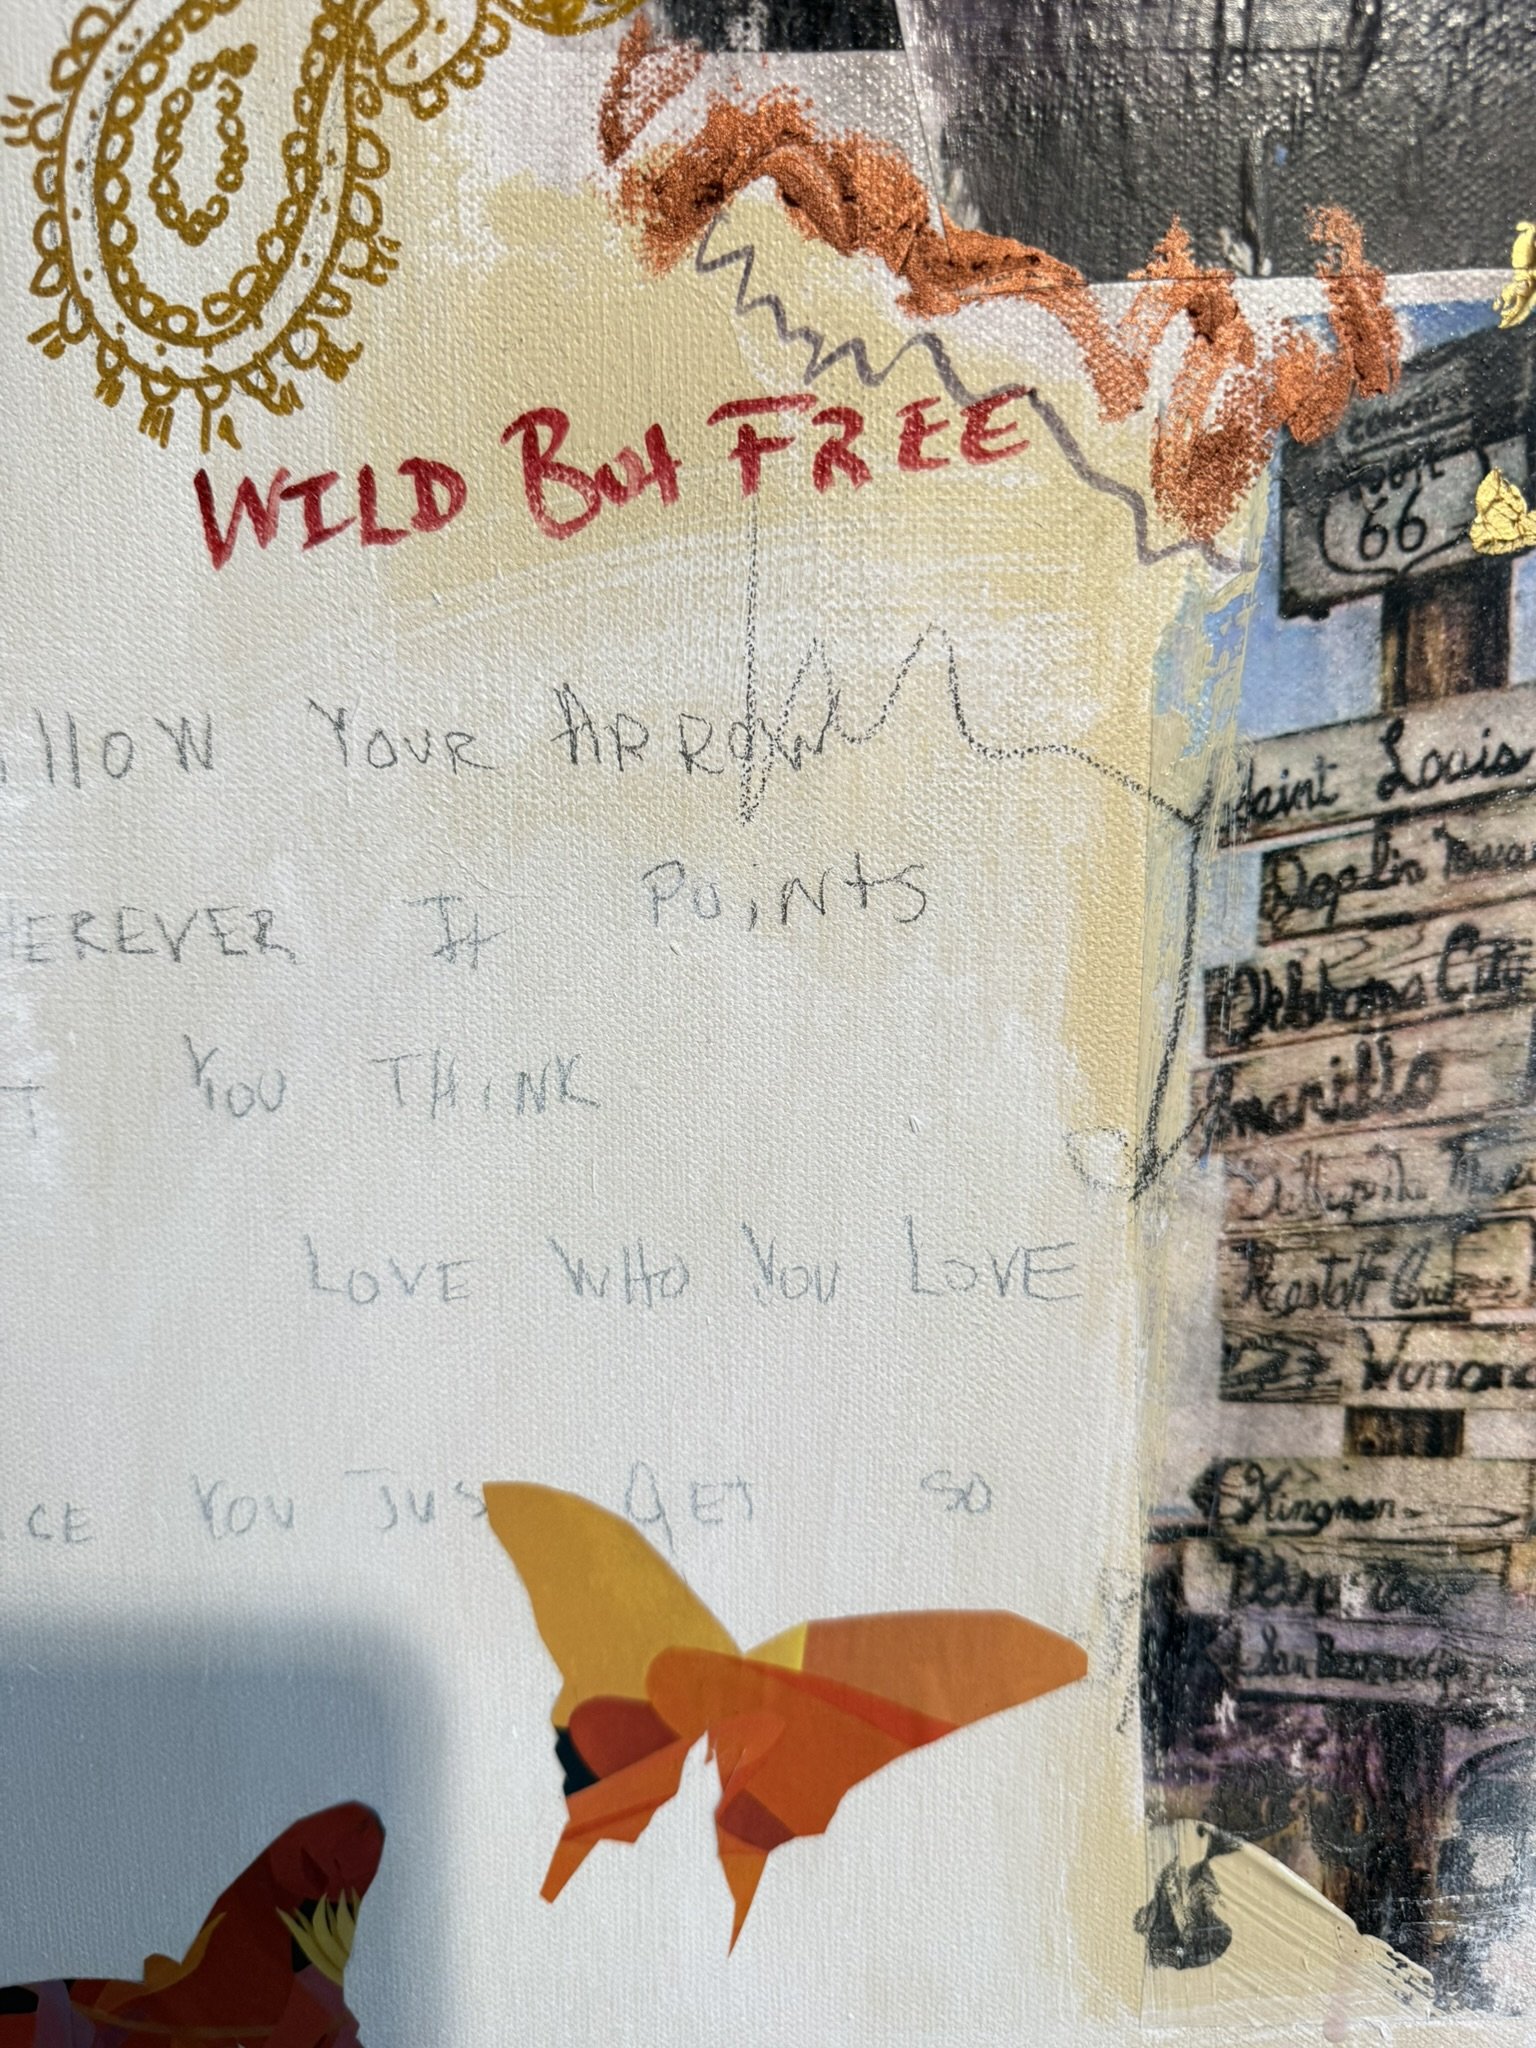 WILD But FREE
llOW YOUR ARROW
EREVER It POiNtS
T YOU THiNK
LOVE WHO YOU LOVE
CE YOU JUS GET SO
ROUTE
66
Saint Louis
Joplin
Oklahoma City
Amarillo
Winona
Kingman